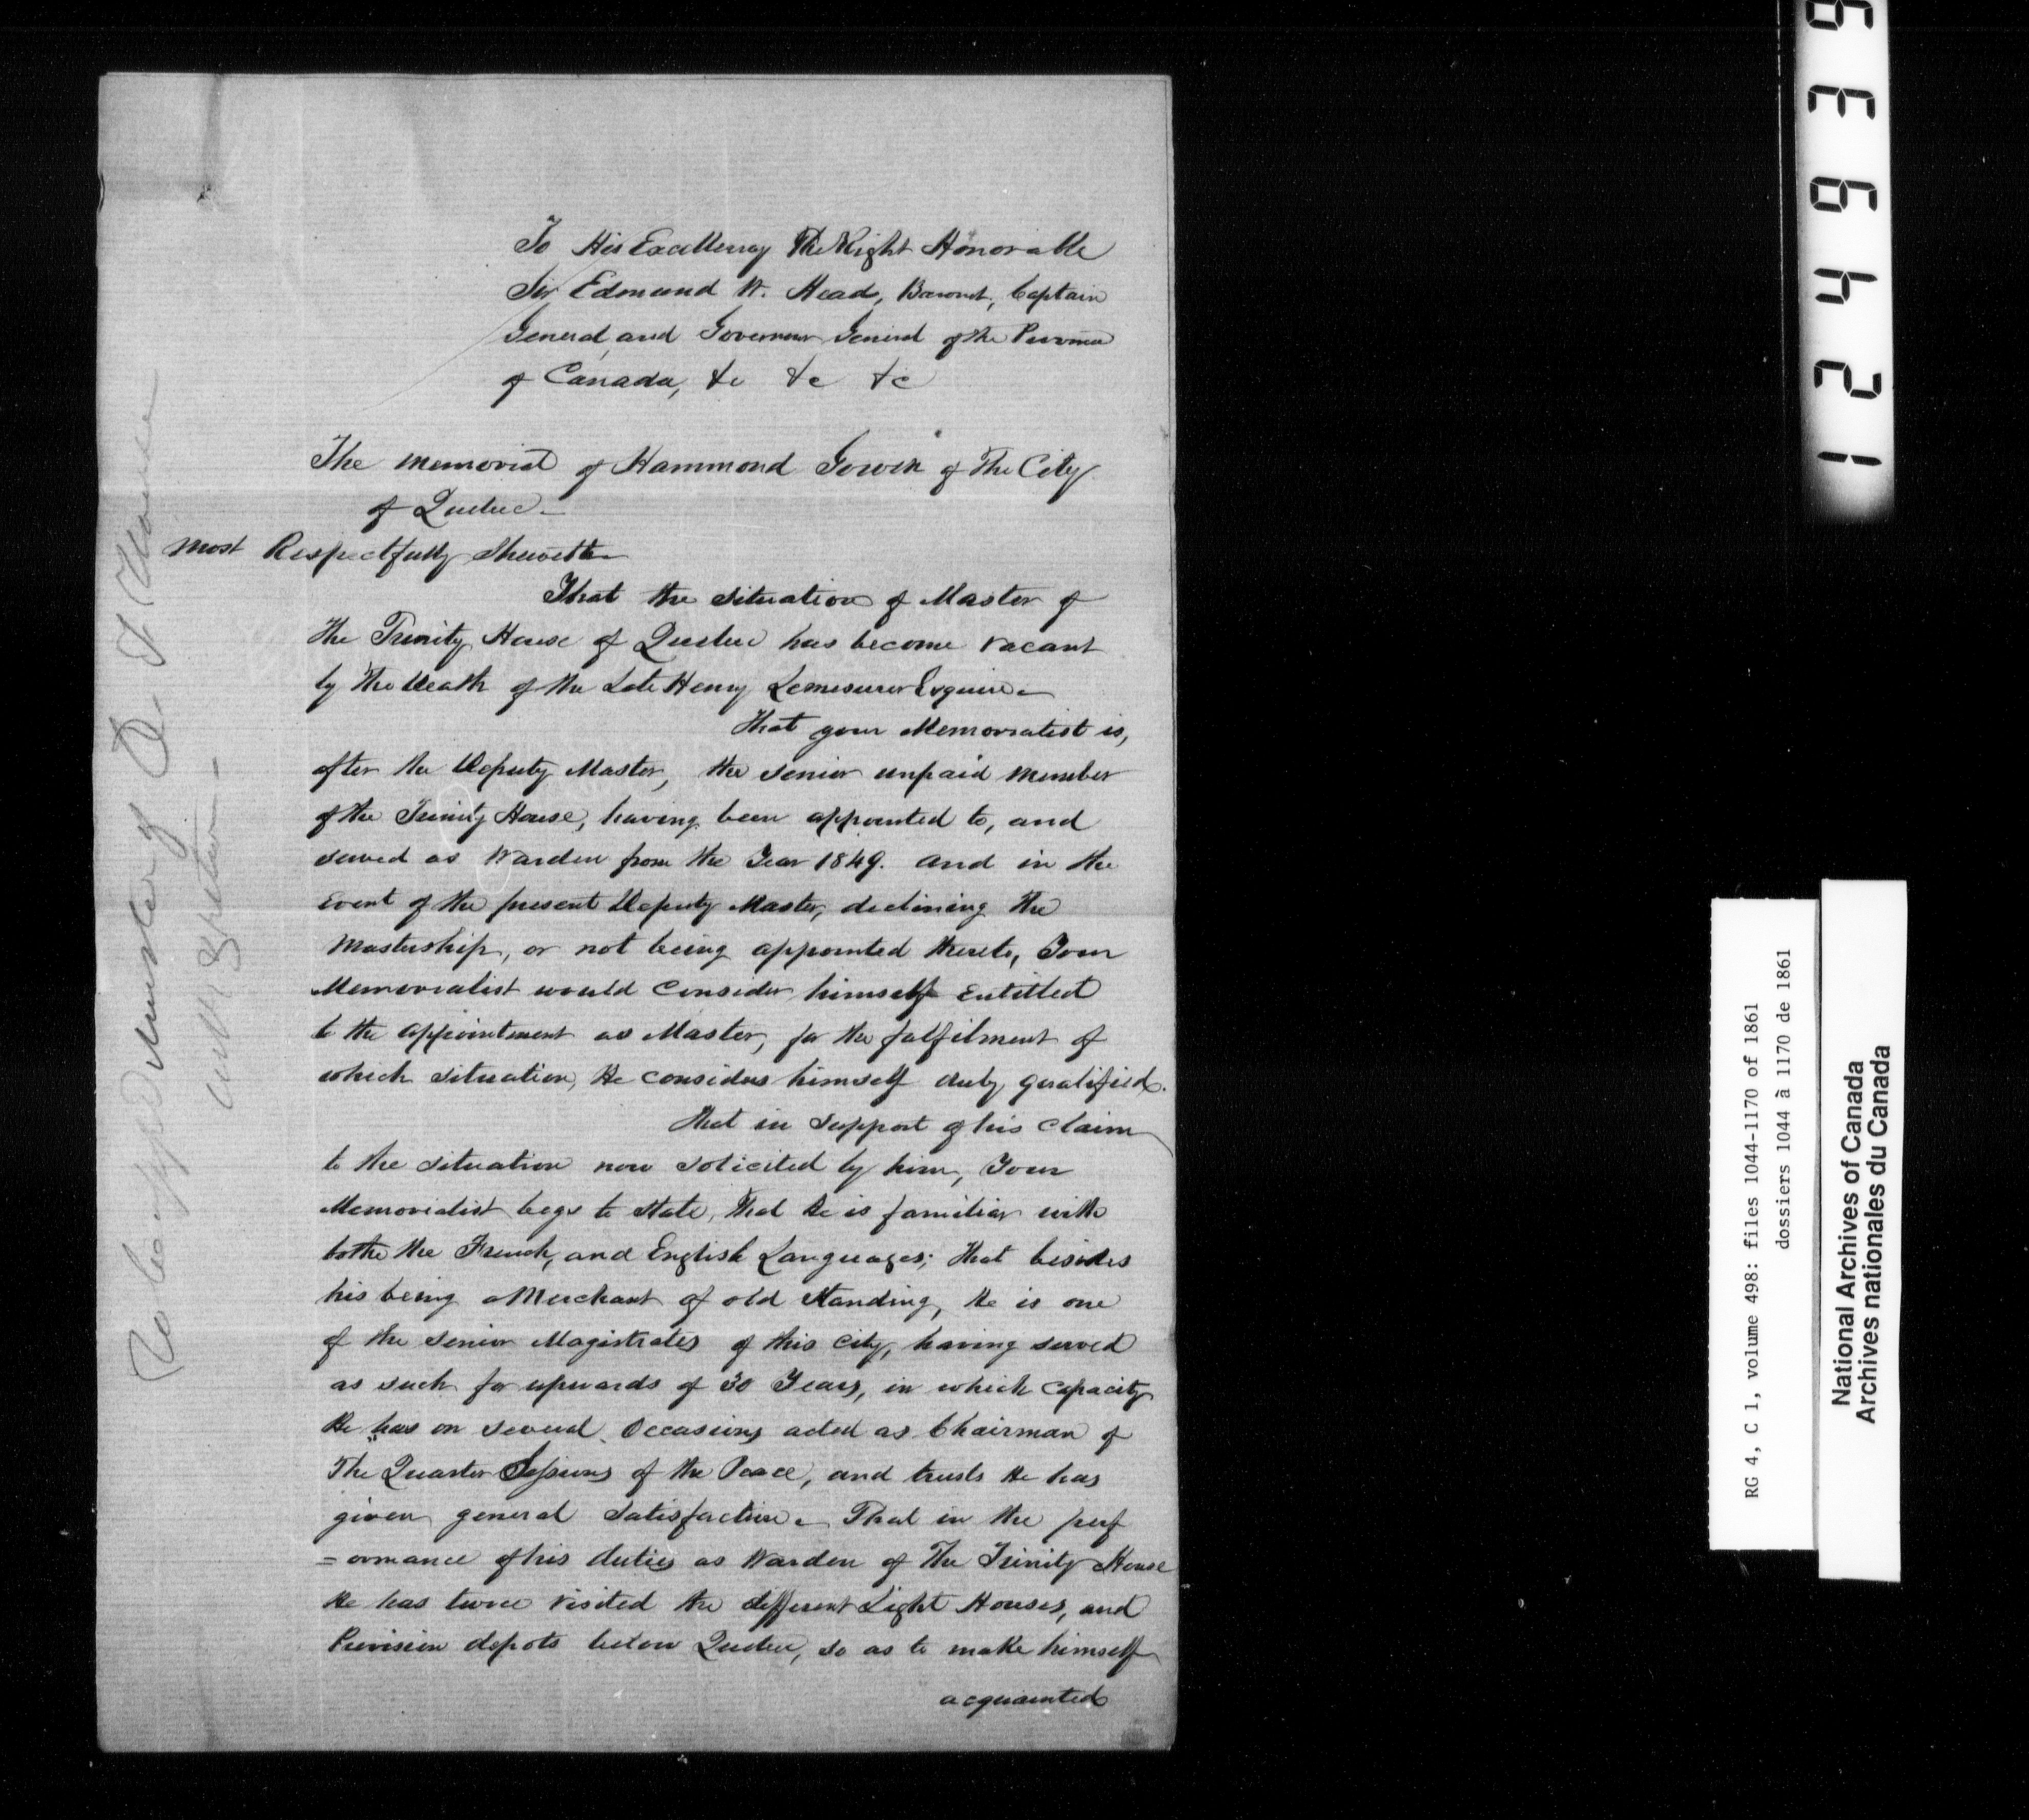 To His Excellency The Right Honorable
Sir Edmund W. Head, Baronet, Captain
General and Governor General of the Province
of Canada, &c &c &c
The memorial of Hammond Gowen of The City
of Quebec_
Most Respectfully Sheweth
That the situation of Master of
the Trinity House of Quebec has become vacant
by the death of the Late Henry Lemesurer Esquire_
That your Memorialist is,
after the Deputy Master, the senior unpaid member
of the Trinity House, having been appointed to, and
served as Warden from the Year 1849. and in the
event of the present Deputy Master, declining the
Mastership, or not being appointed thereto, Your
Memorialist would consider himself entitled
to the appointment as Master, for the fulfilment of
which situation, he considers himself duly qualified.
That in support of his claim
to the situation now solicited by him, Your
Memorialist begs to state, that he is familiar with
bothe the French, and English Languages; that besides
his being a Merchant of old standing, he is one
of the senior Magistrates of this city, having served
as such for upwards of 30 Years, in which capacity
he has on several occasions acted as Chairman of
The Quarter Sessions of the Peace, and trusts he has
given general satisfaction_ That in the perf
=ormance of his duties as Warden of The Trinity House
he has twice visited the different Light Houses, and
Provision depots below Quebec, so as to make himself
acquainted
To Minister of
124639
RG 4, C 1, volume 498: files 1044-1170 of 1861
dossiers 1044 à 1170 de 1861
National Archives of Canada
Archives nationales du Canada